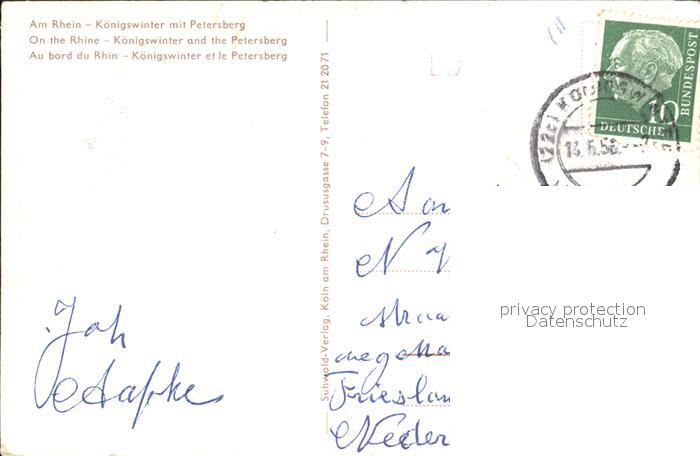 Am Rhein – Königswinter mit Petersberg
On the Rhine – Königswinter and the Petersberg
Au bord du Rhin – Königswinter et le Petersberg
Suhwold-Verlag, Köln am Rhein, Drususgasse 7-9, Telefon 21 20 71
DEUTSCHE
BUNDESPOST
10
Joh
Aan
N
straa
Frieslan
Neder
privacy protection
Datenschutz